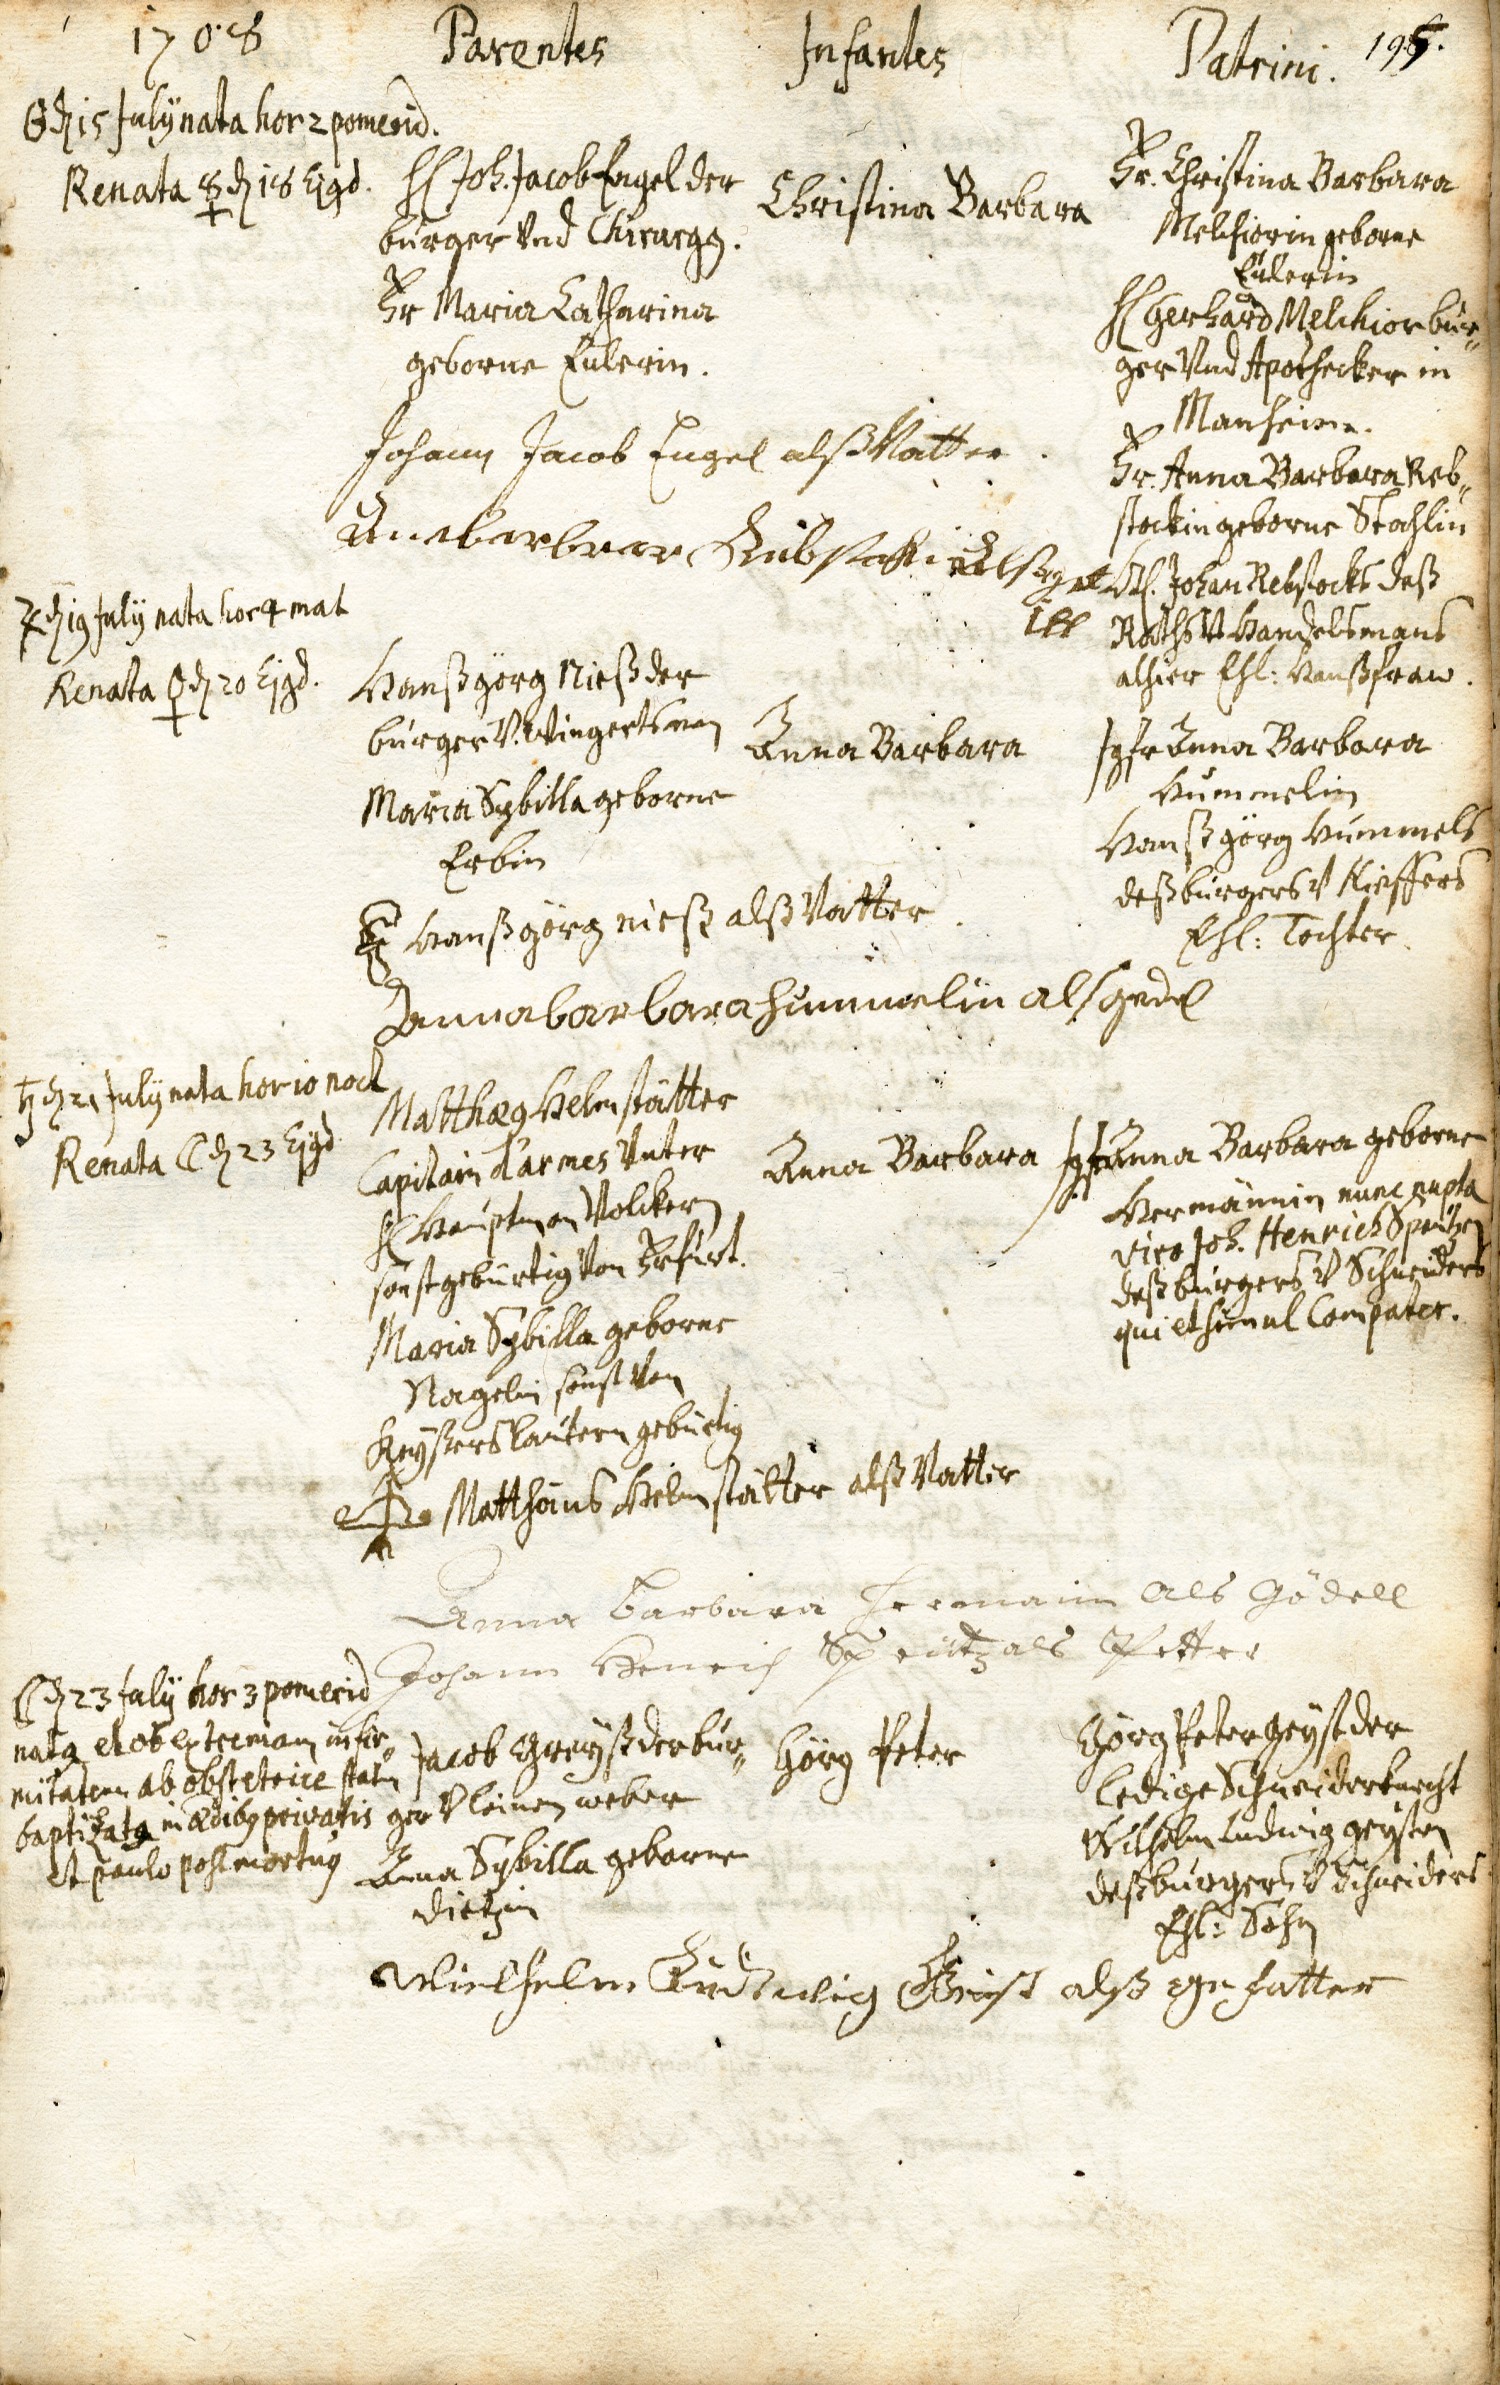 1708 Parentes Infantes Patrini. 195.
☉ d 15 July nata hor 2 pomerid.
Renata ☿ d 18 Ejgd.
H Joh. Jacob Engel der
burger Vnd Chirurgg.
Fr Maria Catharina
geborne Eulerin.
Christina Barbara
Fr. Christina Barbara
Melchiorin geborne
Eulerin
H Gerhard Melchior bur„
ger Vnd Apothecker in
Manheim.
Fr. Anna Barbara Reb„
stockin geborne Stochlin
H. Johan Rebstocks deß
Raths V Handelsmans
alhier Ehl: Haußfraw.
Johann Jacob Engel alß Vatter.
Anebarbrar
♃ d 19 July nata hor 4 mat
Renata ♀ d 20 Ejgd.
Hanß görg Nieß der
burger V. Wingertsman
Maria Sybilla geborne
Erbin
Anna Barbara
Jgfr Anna Barbara
Hummelin
Hanß görg Hummels
deß burgers V Kieffers
Ehl: Tochter.
Hanß görg nieß alß Vatter.
Anna barbara hummelin als gedel
♄ d 21 July nata hor 10 noct
Renata ☾ d 23 Ejgd
Matthæg Helmstätter
Capitain d'armes Vnter
H Hauptman Volckern
sonst geburtig Von Erfurt.
Maria Sybilla geborne
Nagelin sonst Von
Keyßerslautern geburtig
Anna Barbara
Jgfr Anna Barbara geborne
Hermännin nunc nupta
viro Joh. Henrich Speutzen
deß burgers V Schneiders
qui et simul Compater.
Matthäus Helmstätter alß Vatter
Anna barbara hermanin als Gödell
Johann Henrich Speutz als Petter
☾ d 23 July hor 3 pomerid
natg et ob extremam infir„
mitatem ab obstetrice statim
baptizatg in ædibg privatis
et paulo post mortug
Jacob Greyß der bur„
ger V leinen weber
Anna Sybilla geborne
Dietzin
Görg Peter
Görg Peter geyst der
ledige Schneiderknecht
Wilhelm Ludwig geysten
deß burgers V Schneiders
Ehl: Sohn
Wielhelm Ludwig Geist alß gefatter